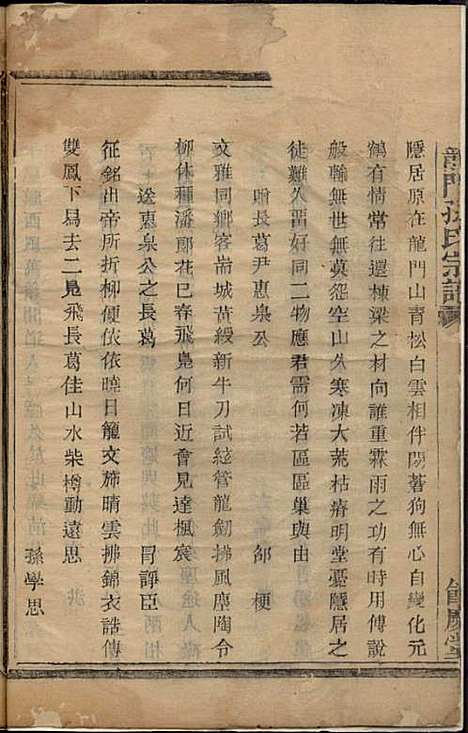 龍門孫氏宗譜
餘慶堂
隱居原在龍門山青松白雲相伴閒蒼狗無心自變化元
鶴有情常往還棟梁之材向誰重霖雨之功有時用傅說
般輪無世無莫怨空山久寒凍大荒枯瘠明堂憂隱居之
徒難久留好同二物應君需何若區區巢與由
贈長葛尹惠泉公　邹梗
文雅同鄉客崙城苗綬新牛刀試絃管龍劒拂風塵陶令
柳休種潘郎花巳春飛鳧何日近會見達楓宸
送惠泉公之長葛　冐諍臣
征銘出帝所折柳便依依曉日籠文斾晴雲拂錦衣誥傳
雙鳳下舄去二鳧飛長葛佳山水柴樽動遠思
孫學思